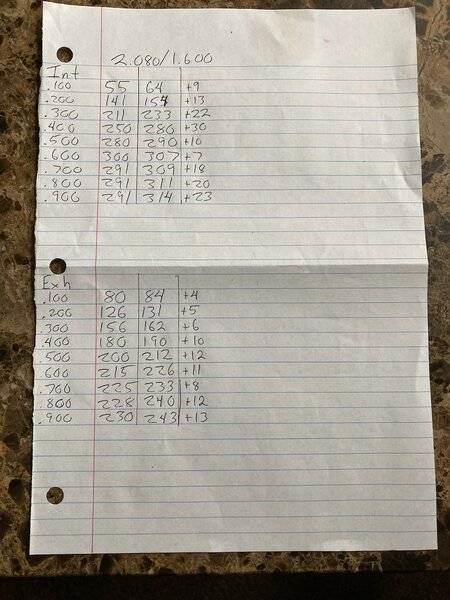 2.080/1.600
Int
.100 55 64 +9
.200 141 154 +13
.300 211 233 +22
.400 250 280 +30
.500 280 290 +10
.600 300 307 +7
.700 291 309 +18
.800 291 311 +20
.900 291 314 +23
Exh
.100 80 84 +4
.200 126 131 +5
.300 156 162 +6
.400 180 190 +10
.500 200 212 +12
.600 215 226 +11
.700 225 233 +8
.800 228 240 +12
.900 230 243 +13